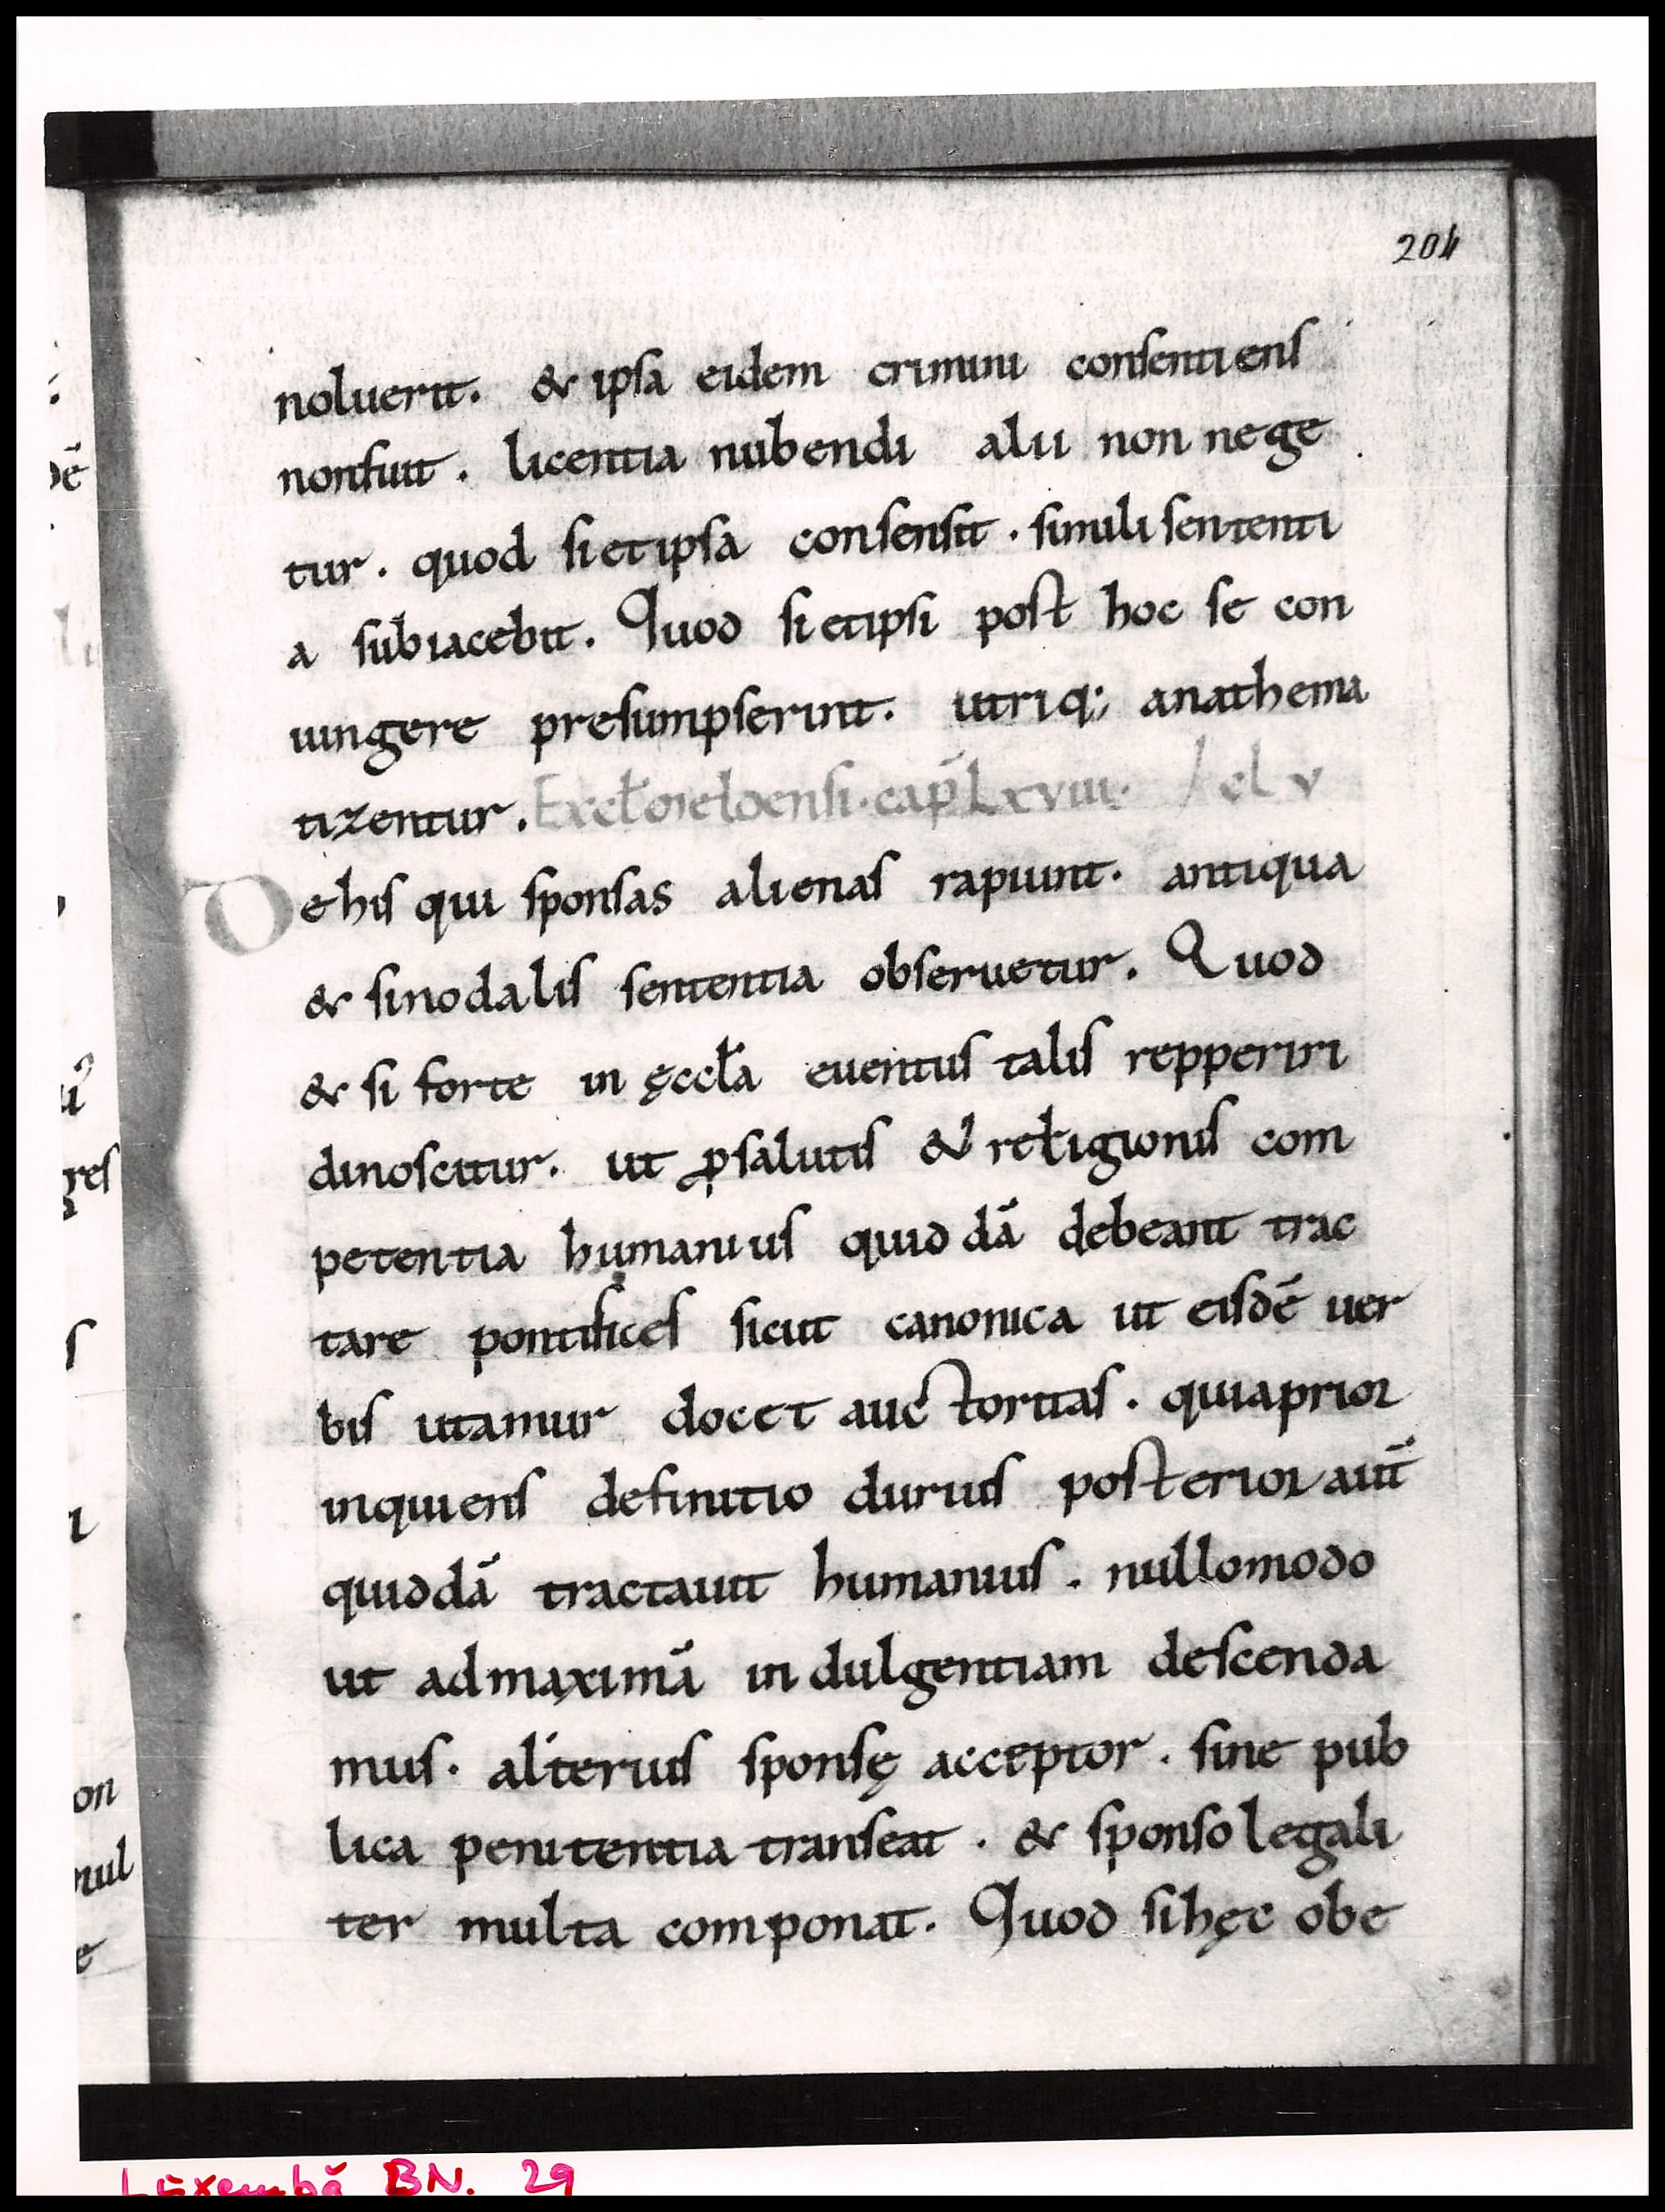 204
noluerit. & ipsa eidem crimini consentiens
nonfuit. licentia nubendi alii non nege
tur. quod si et ipsa consensit. simili sententi
a subiacebit. Quod si et ipsi post hoc se con
iungere presumpserint. utriq; anathema
tizentur. Ex cł oieldensi. cap̄ Lxviii. cl v
De his qui sponsas alienas rapiunt. antiqua
& sinodalis sententia obseruetur. Quod
& si forte in ęccła euentus talis repperiri
dinoscitur. ut ꝓ salutis & religionis com
petentia humanius quiddā debeant trac
tare pontifices sicut canonica ut eisdē uer
bis utamur docet auctoritas. quia prior
inquiens definitio durius posterior aut̄
quiddā tractauit humanius. nullomodo
ut ad maximā indulgentiam descenda
mus. alterius sponsę acceptor. sine pub
lica penitentia transeat. & sponso legali
ter multa componat. Quod si hęc obe
dē
gres
s
on
e
BN. 29